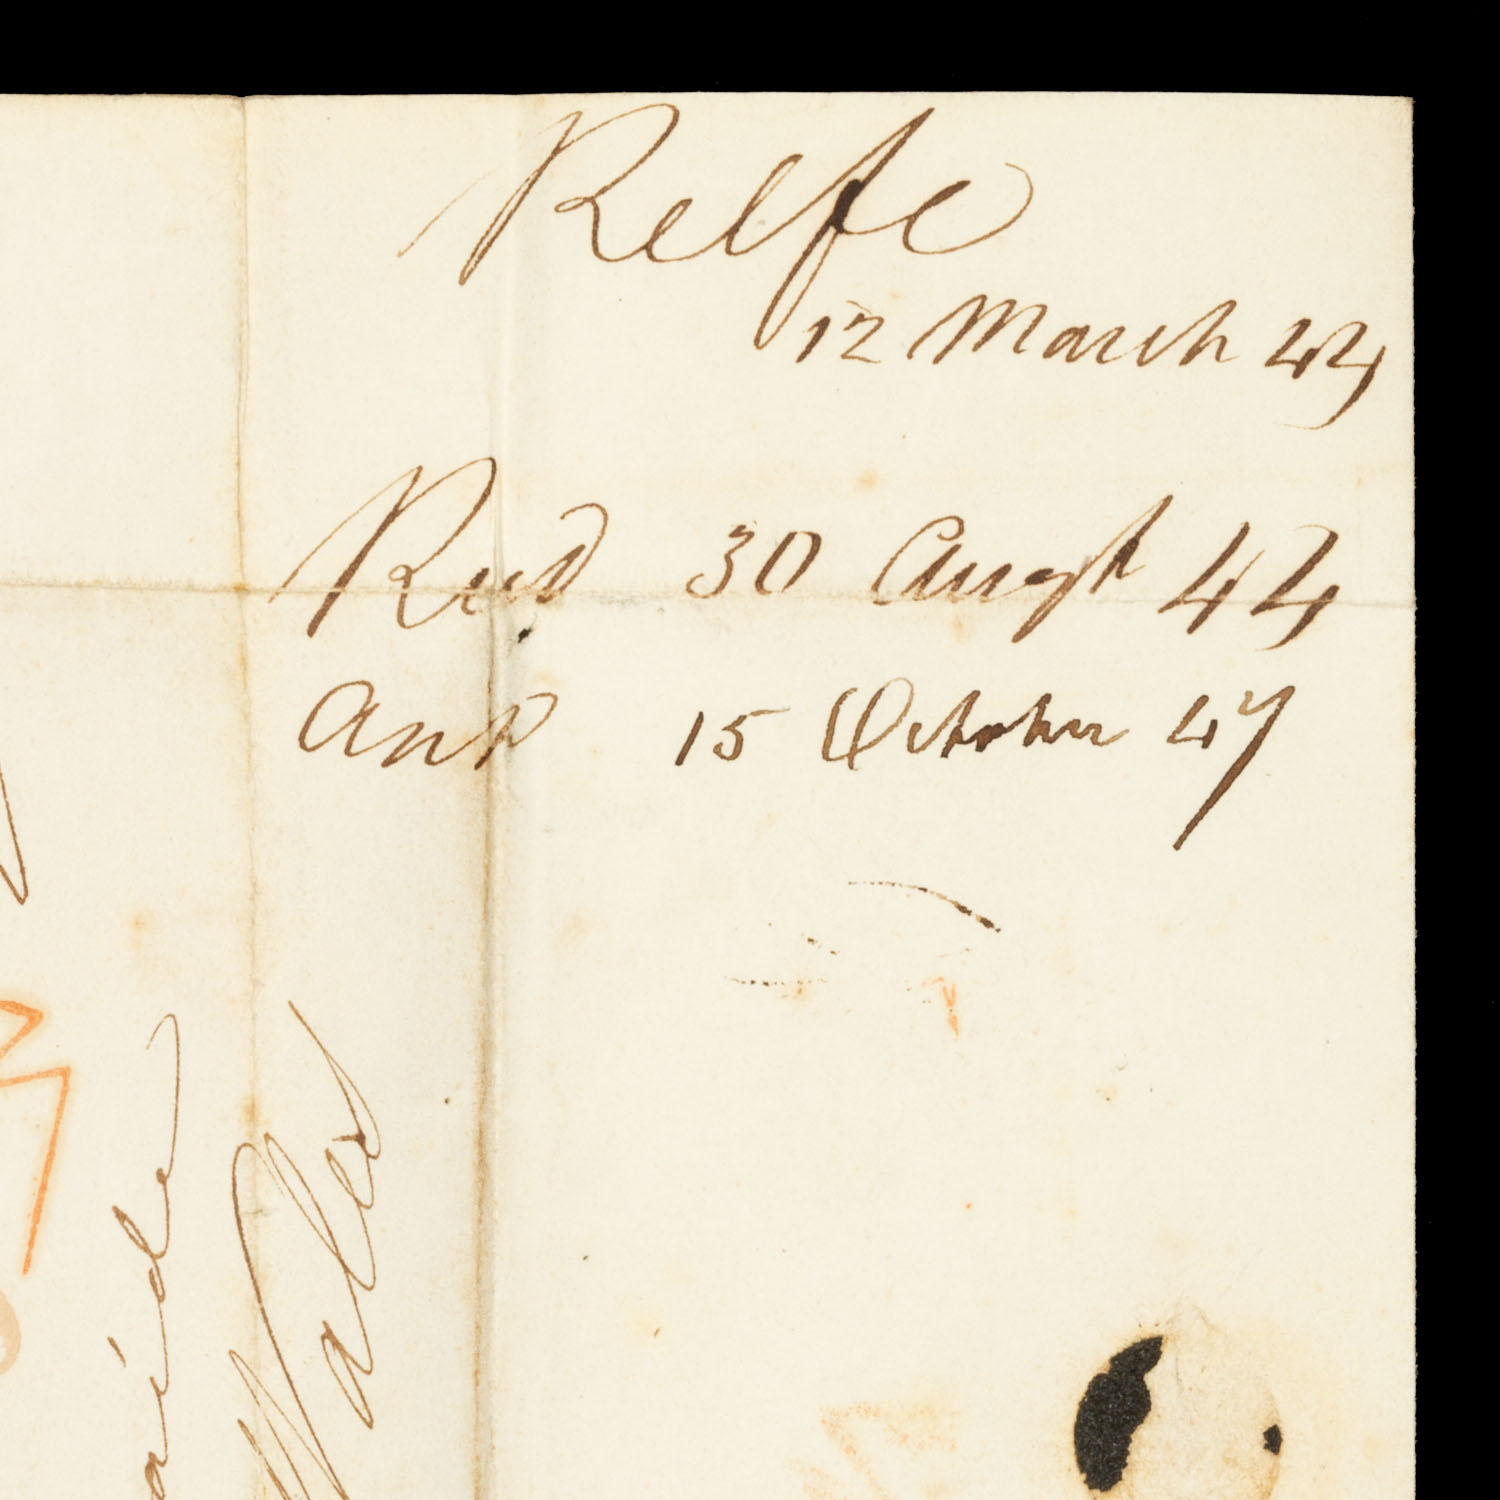 Relfe
12 March 44
Recd 30 Augt 44
Ansd 15 October 47
Wales